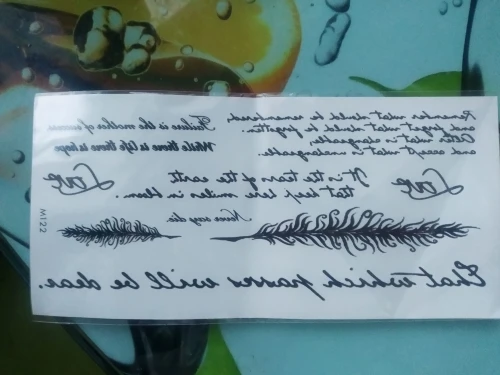 Remember what should be remembered,
and forget what should be forgotten.
Alter what is changeable,
and accept what is unchangeable.
Failure is the mother of success
While there is life there is hope
Love
It is the tears of the earth
that keep here smiles in bloom.
Love
Never say die
M122
That which passes will be dear.